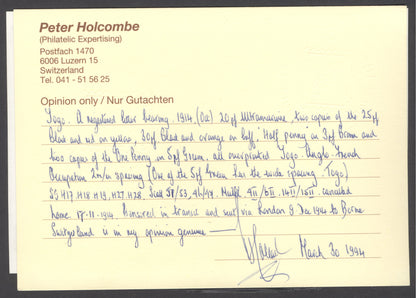 Peter Holcombe
(Philatelic Expertising)
Postfach 1470
6006 Luzern 15
Switzerland
Tel. 041 - 51 56 25
Opinion only / Nur Gutachten
Togo. A registered cover bearing 1914 (Oct) 20pf Ultramarine, two copies of the 25pf
black and red on yellow, 30pf black and orange on buff. Half penny on 3pf Brown and
two copies of the One Penny on 5pf Green, all overprinted Togo Anglo-French
Occupation 2m/m spacing (One of the 5pf Green has the wide spacing, Togo)
SG H17, H18, H19, H27, H28, Scott
cancelled
Lome. 17-11-1914. Censored in transit and sent via London 9 Dec 1914 to Berne
Switzerland is in my opinion genuine
March 30 1994